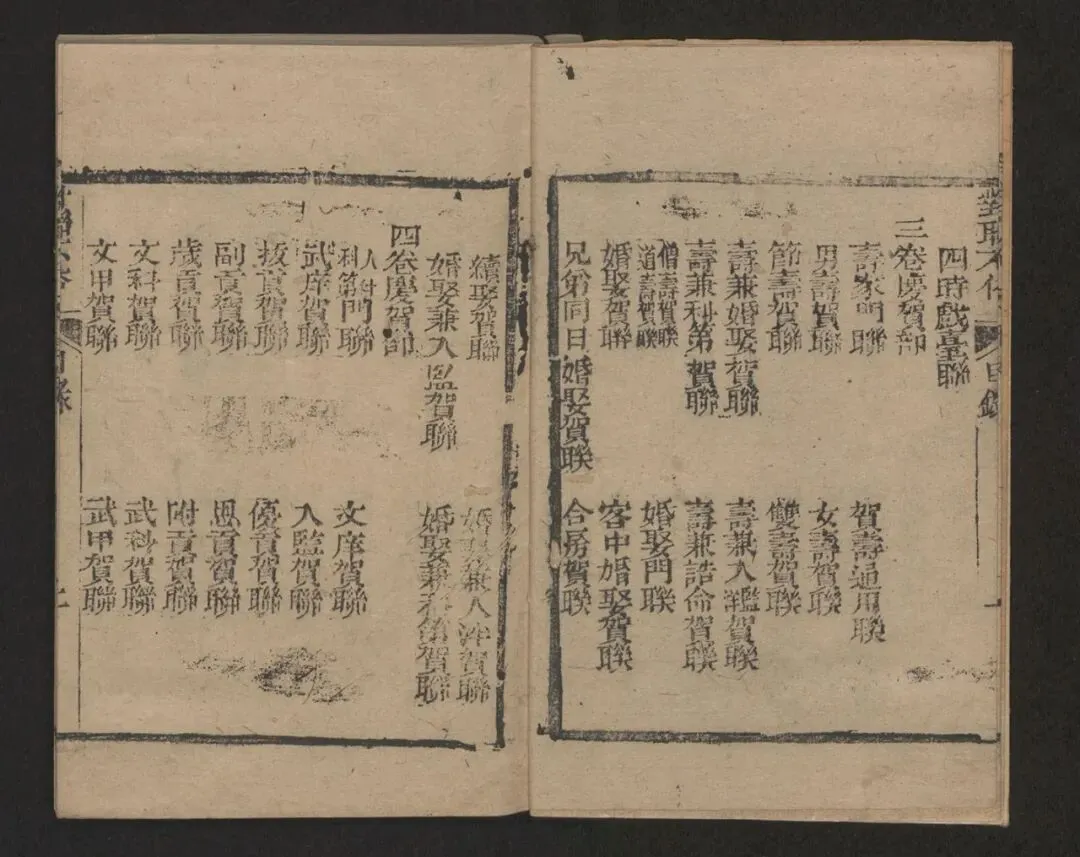 對聯不俗 目錄
四時戲臺聯
三卷慶賀部
壽家門聯 賀壽通用聯
男壽賀聯 女壽賀聯
節壽賀聯 雙壽賀聯
壽兼婚娶賀聯 壽兼入監賀聯
壽兼科第賀聯 壽兼誥命賀聯
僧壽賀聯
道壽賀聯 婚娶門聯
婚娶賀聯 客中婚娶賀聯
兄弟同日婚娶賀聯 合房賀聯
續娶賀聯 婚娶兼入泮賀聯
婚娶兼入監賀聯 婚娶兼科第賀聯
四卷慶賀部
入泮門
科第門聯 文庠賀聯
武庠賀聯 入監賀聯
拔貢賀聯 優貢賀聯
副貢賀聯 恩貢賀聯
歲貢賀聯 附貢賀聯
文科賀聯 武科賀聯
文甲賀聯 武甲賀聯
目錄